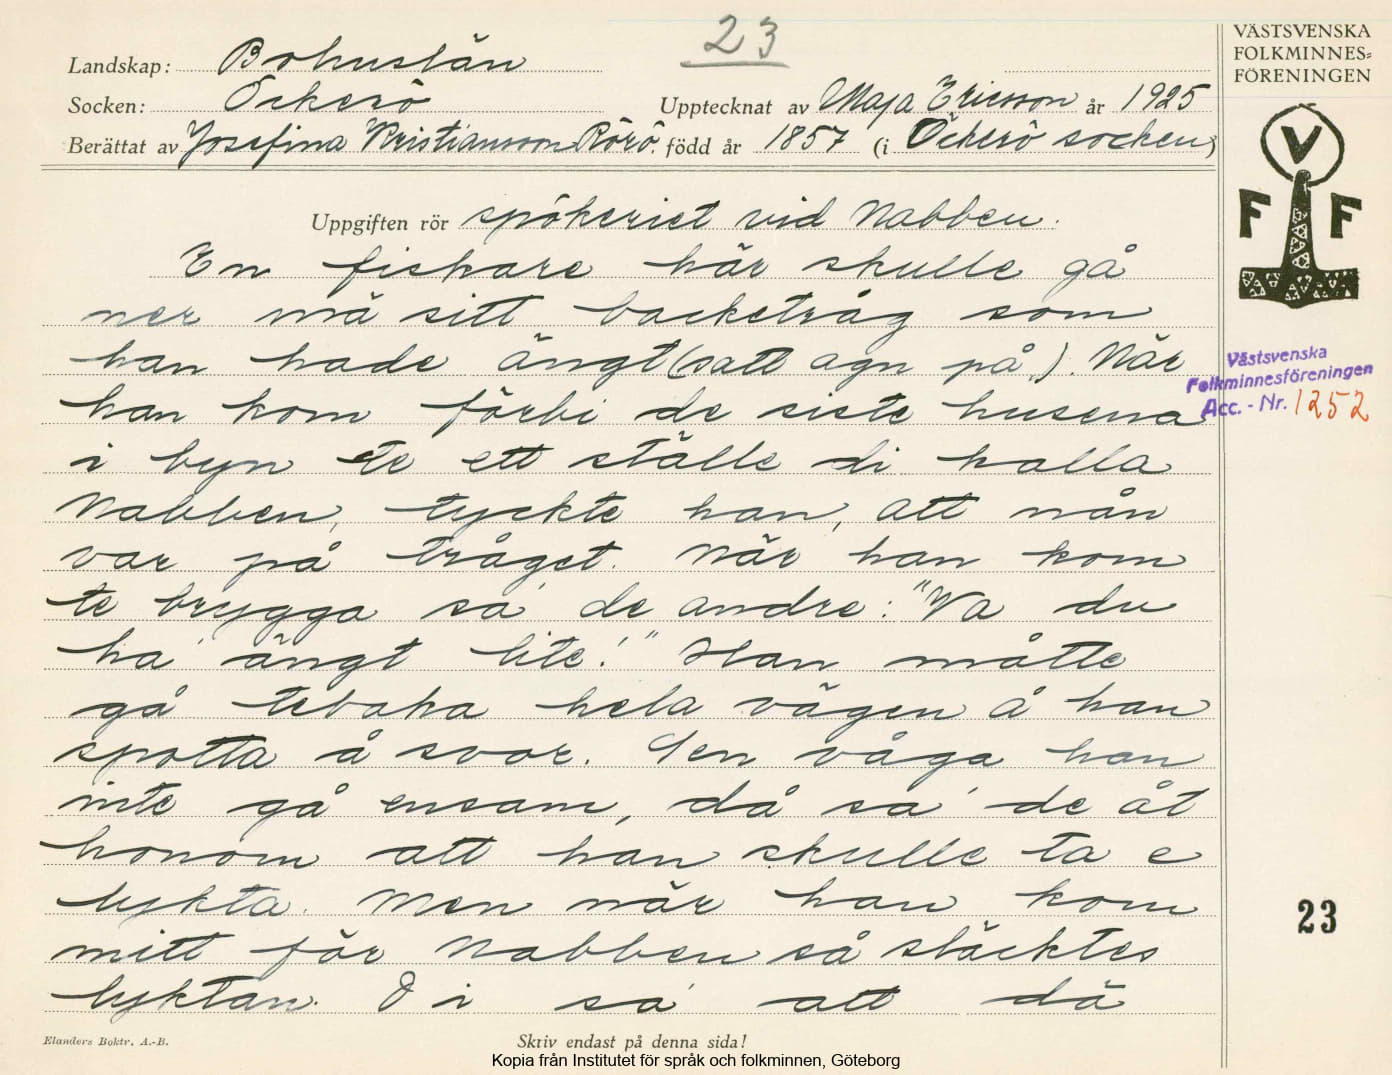 23
Landskap: Bohuslän
Socken: Öckerö
Upptecknat av Maja Ericsson år 1925
Berättat av Josefina Kristiansson Rörö. född år 1857 (i Öckerö socken)
VÄSTSVENSKA
FOLKMINNES-
FÖRENINGEN
V
F F
Uppgiften rör spökeriet vid Nabben.
En fiskare här skulle gå
ner mä sitt backetråg som
han hade ängt (satt agn på). När
han kom förbi de siste husena
i byn te ett ställe di kalla
Nabben, tyckte han, att nån
var på tråget. När han kom
te brygga sa' de andre: "Va du
ha' ängt lite!" Han måtte
gå tebaka hela vägen å han
spotta å svor. Sen våga han
inte gå ensam, då sa' de åt
honom att han skulle ta e
lykta. Men när han kom
mitt för Nabben så släcktes
lyktan. Di sa' att dä
Västsvenska
Folkminnesföreningen
Acc. - Nr. 1252
23
Elanders Boktr. A.-B.
Skriv endast på denna sida!
Kopia från Institutet för språk och folkminnen, Göteborg